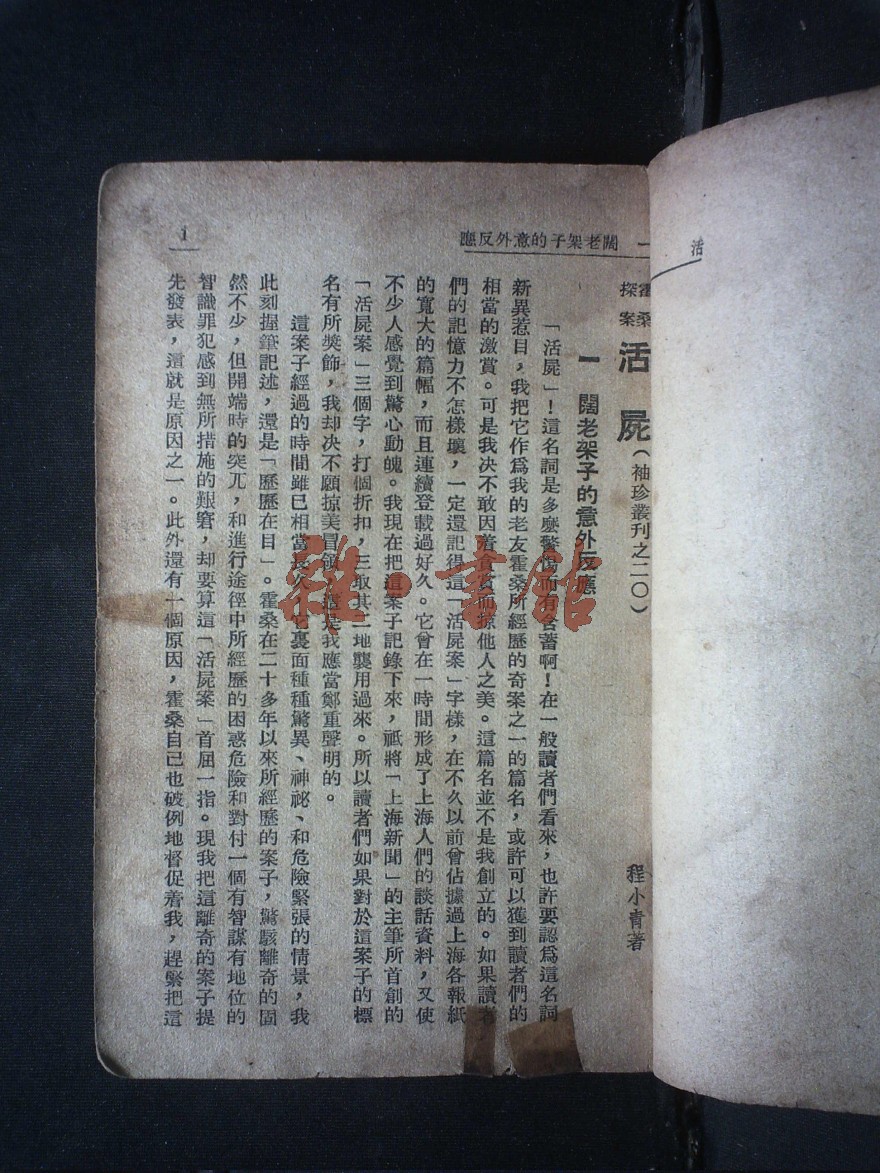 活
一 闊老架子的意外反應
1
霍桑
探案
活屍(袖珍叢刊之二〇)
程小青著
一 闊老架子的意外反應
「活屍」!這名詞是多麽驚惕而有含蓄啊!在一般讀者們看來,也許要認爲這名詞
新異惹目,我把它作爲我的老友霍桑所經歷的奇案之一的篇名,或許可以獲到讀者們的
相當的激賞。可是我決不敢因着貪賞而掠他人之美。這篇名並不是我創立的。如果讀者
們的記憶力不怎樣壞,一定還記得這「活屍案」字樣,在不久以前曾佔據過上海各報紙
的寬大的篇幅,而且連續登載過好久。它曾在一時間形成了上海人們的談話資料,又使
不少人感覺到驚心動魄。我現在把這案子記錄下來,祇將「上海新聞」的主筆所首創的
「活屍案」三個字,打個折扣,三取其二地襲用過來。所以讀者們如果對於這案子的標
名有所獎飾,我却决不願掠美冒領,這是我應當鄭重聲明的。
這案子經過的時間雖已相當長久,它裏面種種驚異、神祕、和危險緊張的情景,我
此刻握筆記述,還是「歷歷在目」。霍桑在二十多年以來所經歷的案子,驚駭離奇的固
然不少,但開端時的突兀,和進行途徑中所經歷的困惑危險和對付一個有智謀有地位的
智識罪犯感到無所措施的艱窘,却要算這「活屍案」首屈一指。現我把這離奇的案子提
先發表,這就是原因之一。此外還有一個原因,霍桑自己也破例地督促着我,趕緊把這
雜·書館